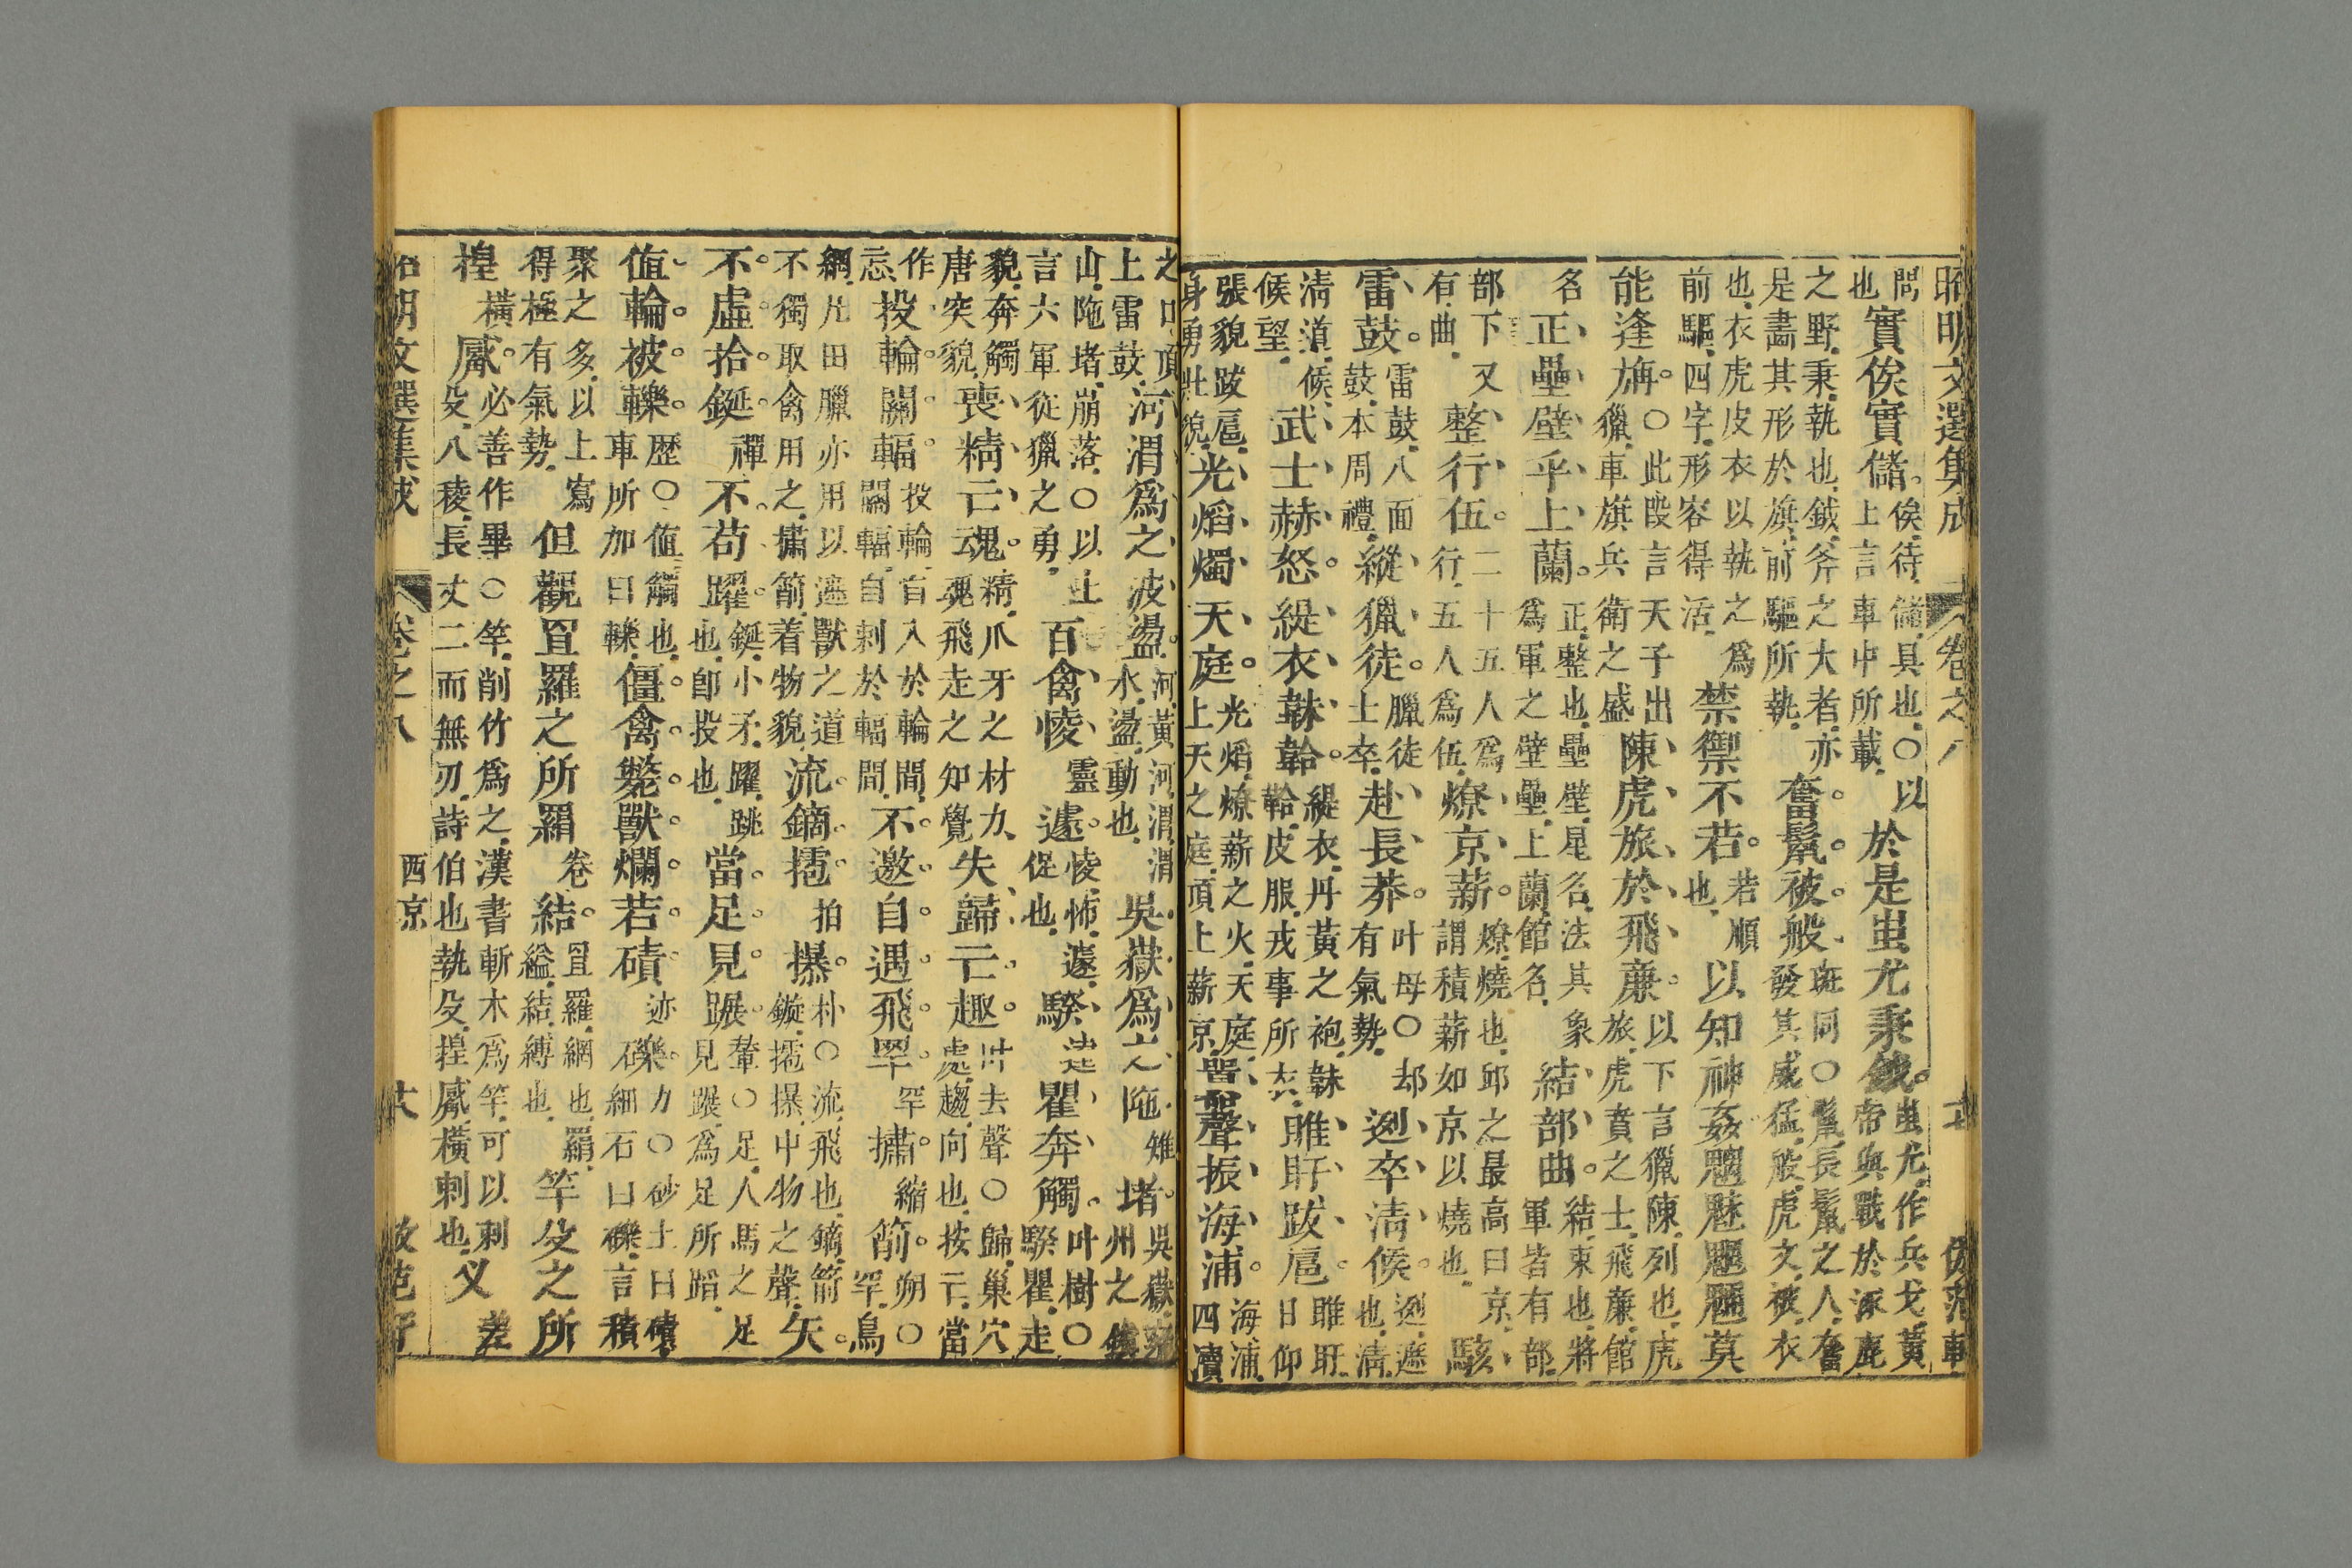 昭明文選集成 卷之八
間也實俟實儲。俟待儲具也○以上言車中所載於是蚩尤秉鉞。蚩尤作兵戈黃帝與戰於涿鹿
之野秉執也鉞斧之大者亦是畵其形於旗前驅所執奮鬛。被般。班同○鬛長鬛之人奮發其威猛般虎文被衣
也衣虎皮衣以執之爲前驅四字形容得活禁禦不若。若順也以知神姦魑魅魍魎莫
能逢旃。○此段言天子出獵車旗兵衛之盛陳虎旅於飛廉。以下言獵陳列也虎旅虎賁之士飛廉館
名正壘壁乎上蘭。正整也壘壁星名法其象爲軍之壁壘上蘭館名結部曲。結束也將軍皆有部
部下又有曲整行伍。二十五人爲行五人爲伍燎京薪。燎燒也邱之最高曰京謂積薪如京以燒也駭
雷鼓。雷鼓八面鼓本周禮縱獵徒。臘徒士卒赴長莽。叶母○却有氣勢迾卒清候。迾遮也清
清道候候望武士赫怒。緹衣韎韐。緹衣丹黃之袍韎韐皮服戎事所衣睢盱跋扈。睢盱日仰
張貌跋扈身勇壯貌光熖燭天庭。光熖燎薪之火天庭上天之庭頂上薪京囂聲振海浦。海浦四凟
之口頂上雷鼓河渭爲之波盪。河黃河渭渭水盪動也吳嶽爲之陁雉堵。吳嶽州之鎮
山陁堵崩落○以上言六軍從獵之勇百禽㥄靈遽。㥄怖遽促也騤逵瞿奔觸。叶樹○騤瞿走
貌奔觸唐突貌喪精亡魂。精爪牙之材力魂飛走之知覺失歸亡趣。叶去聲○歸巢穴處趨向也按亡當
作忘投輪。關輻。投輪自入於輪間關輻自刺於輻間不邀自遇。飛罕潚縮箾。朔○罕鳥
網凡田臘亦用以遮獸之道不獨取禽用之潚箾着物貌流鏑拍㩧。朴○流飛也鏑箭鏃中物之聲矢
不虛捨鋋禪不苟躍。鋋小矛躍跳也卽投也當足見蹍。輦○足人馬之足見蹍爲足所蹈
值輪被轢。歷○値觸也車所加曰轢僵禽斃獸爛若磧迹礫。力○砂土曰磧細石曰礫言積
聚之多以上寫得極有氣勢但觀罝羅之所羂卷結。罝羅網也羂縊結縛也竿殳之所
揘橫觱。必善作畢○竿削竹爲之漢書斬木爲竿可以刺殳八稜長丈二而無刃詩伯也執殳揘觱橫刺也义差
昭明文選集成 卷之八 西京